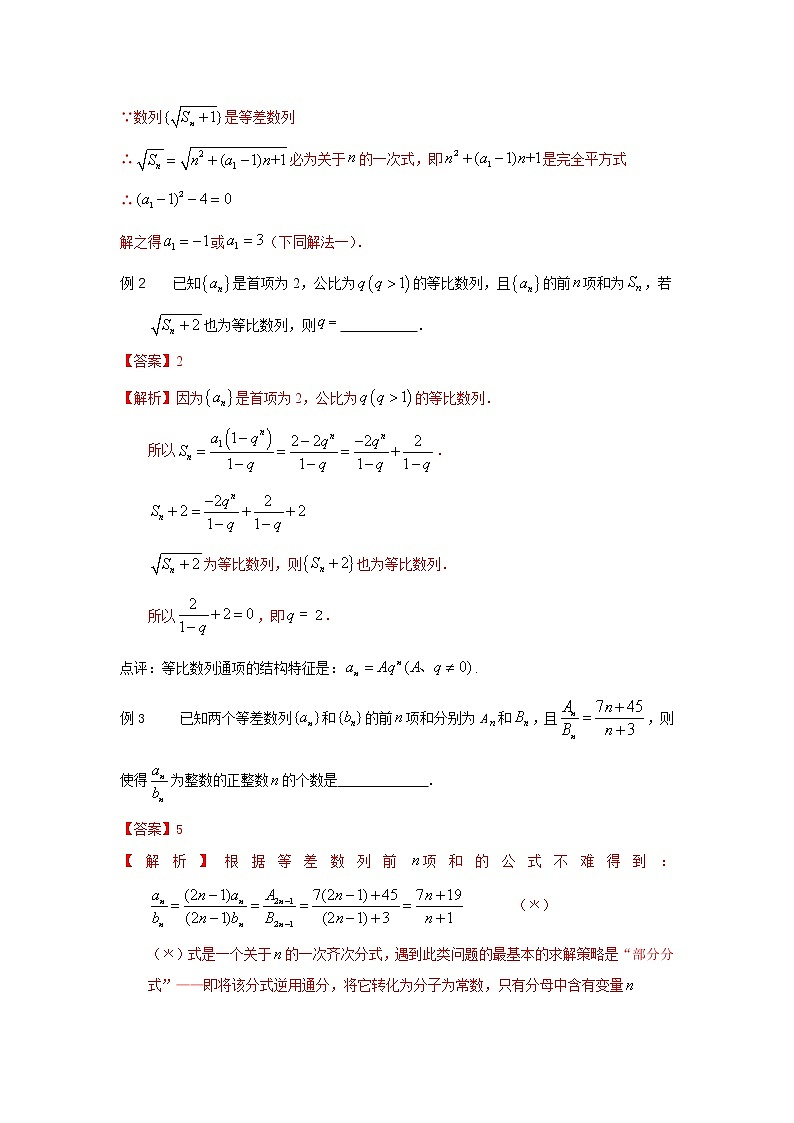 ∵数列{√(Sₙ+1)}是等差数列
∴√Sₙ=√(n²+(a₁−1)n+1)必为关于n的一次式，即n²+(a₁−1)n+1是完全平方式
∴(a₁−1)²−4=0
解之得a₁=−1或a₁=3（下同解法一）.
例2 已知{aₙ}是首项为2，公比为q(q>1)的等比数列，且{aₙ}的前n项和为Sₙ，若
√(Sₙ+2)也为等比数列，则q=___________.
【答案】2
【解析】因为{aₙ}是首项为2，公比为q(q>1)的等比数列.
所以Sₙ=a₁(1−qⁿ)/(1−q)=(2−2qⁿ)/(1−q)=−2qⁿ/(1−q)+2/(1−q).
Sₙ+2=−2qⁿ/(1−q)+2/(1−q)+2
√(Sₙ+2)为等比数列，则{Sₙ+2}也为等比数列.
所以2/(1−q)+2=0，即q=2.
点评：等比数列通项的结构特征是：aₙ=Aqⁿ(A、q≠0).
例3 已知两个等差数列{aₙ}和{bₙ}的前n项和分别为Aₙ和Bₙ，且Aₙ/Bₙ=(7n+45)/(n+3)，则
使得aₙ/bₙ为整数的正整数n的个数是_____________.
【答案】5
【解析】根据等差数列前n项和的公式不难得到：
aₙ/bₙ=(2n−1)aₙ/(2n−1)bₙ=A₂ₙ₋₁/B₂ₙ₋₁=(7(2n−1)+45)/((2n−1)+3)=(7n+19)/(n+1) （※）
（※）式是一个关于n的一次齐次分式，遇到此类问题的最基本的求解策略是“部分分
式”——即将该分式逆用通分，将它转化为分子为常数，只有分母中含有变量n